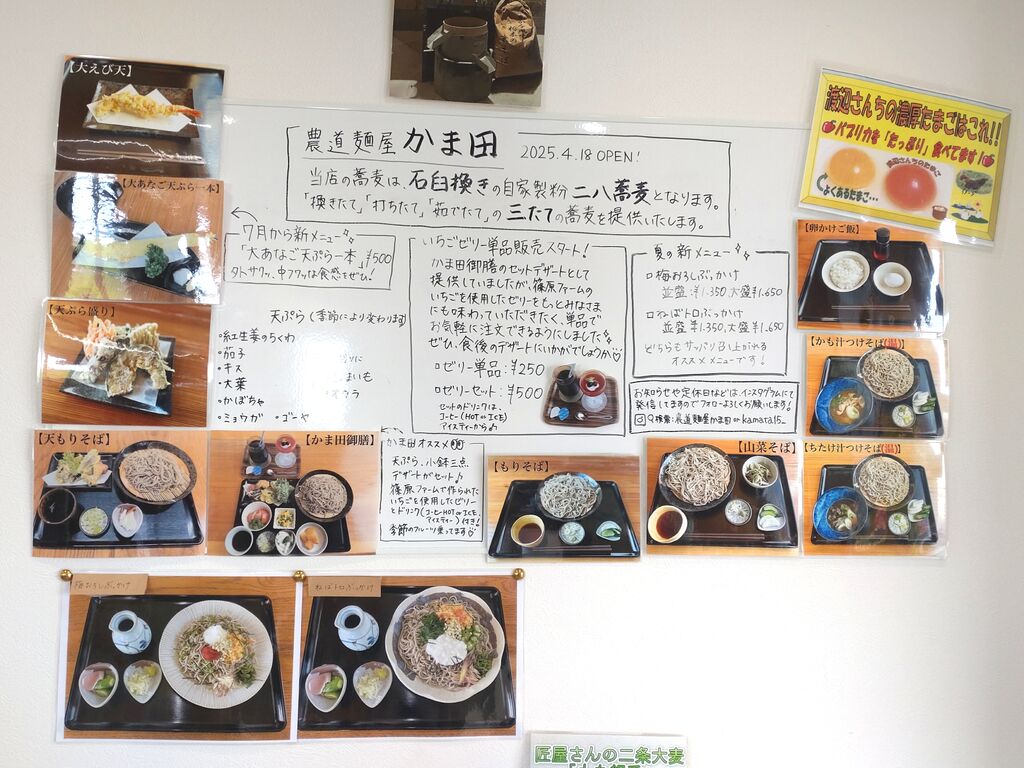 【大えび天】
【大あなご天ぷら一本】
【天ぷら盛り】
農道麺屋 かま田 2025.4.18 OPEN!
当店の蕎麦は、石臼挽きの自家製粉 二八蕎麦となります。
「挽きたて」「打ちたて」「茹でたて」の 三たての蕎麦を提供いたします。
7月から新メニュー
「大あなご天ぷら一本」¥500
外サクッ、中フワッな食感をぜひ!
天ぷら(季節により変わります)
・紅生姜のちくわ
・茄子
・キス
・大葉
・かぼちゃ
・ミョウガ ・ゴーヤ
いちごゼリー単品販売スタート!
かま田御膳のセットデザートとして
提供していましたが、篠原ファームの
いちごを使用したゼリーをもっとみなさま
にも味わっていただきたく、単品で
お気軽に注文できるようにしました
ぜひ、食後のデザートにいかがでしょうか♡
ゼリー単品:¥250
ゼリーセット:¥500
セットのドリンクは、
コーヒー(HOT or ICE)
アイスティーから♪
夏の新メニュー
梅おろしぶっかけ
並盛:¥1.350,大盛¥1.650
ねばトロぶっかけ
並盛¥1.350,大盛¥1.690
どちらもサッパリ召し上がれる
オススメメニューです!
お知らせや定休日などは、インスタグラムにて
発信してますのでフォローよろしくお願いします!
検索:農道麺屋かま田 or kamata15_
渡辺さんちの濃厚たまごはこれ!!
パプリカを「たっぷり」食べてます!
渡辺さんちのたまご
よくあるたまご…
【卵かけご飯】
【かも汁つけそば(温)】
【ちたけ汁つけそば(温)】
【天もりそば】
【かま田御膳】
かま田オススメ
天ぷら、小鉢三点
デザートがセット♪
篠原ファームで作られた
いちごを使用したゼリー
とドリンク(コーヒーHOT or ICE,
アイスティー)付き!
季節のフルーツ乗ってます♡
【もりそば】
【山菜そば】
梅おろしぶっかけ
ねばトロぶっかけ
匠屋さんの二条大麦